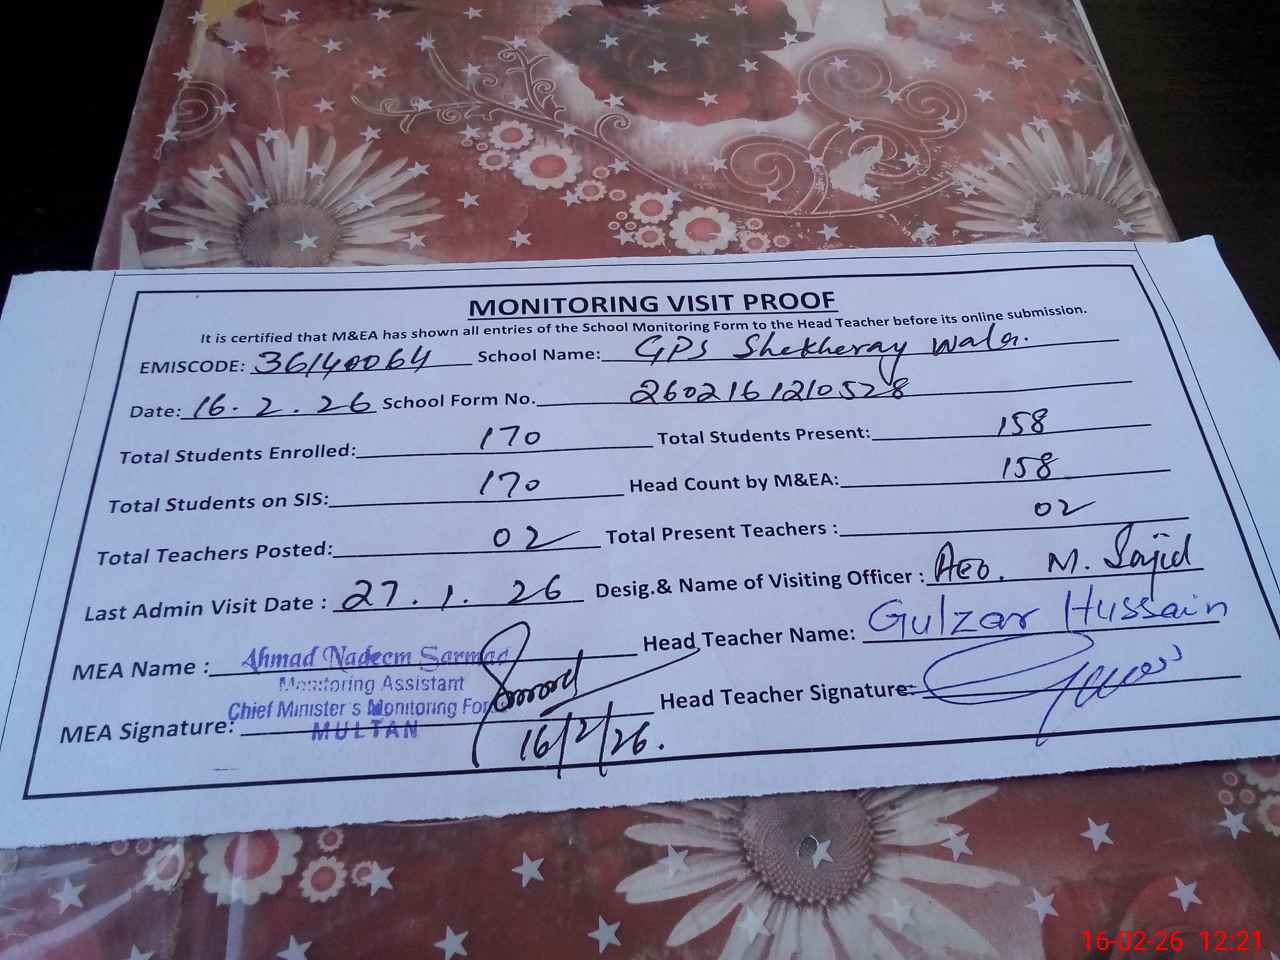 MONITORING VISIT PROOF
It is certified that M&EA has shown all entries of the School Monitoring Form to the Head Teacher before its online submission.
EMISCODE: 36140064 School Name: GPS Shekheray wala.
Date: 16.2.26 School Form No. 2602161210528
Total Students Enrolled: 170 Total Students Present: 158
Total Students on SIS: 170 Head Count by M&EA: 158
Total Teachers Posted: 02 Total Present Teachers : 02
Last Admin Visit Date : 27.1.26 Desig.& Name of Visiting Officer : Aeo. M. Sajid
MEA Name : Ahmad Nadeem Sarmad Head Teacher Name: Gulzar Hussain
Monitoring Assistant
Chief Minister's Monitoring Force
MULTAN
MEA Signature: Head Teacher Signature:
16/2/26.
16-02-26 12:21